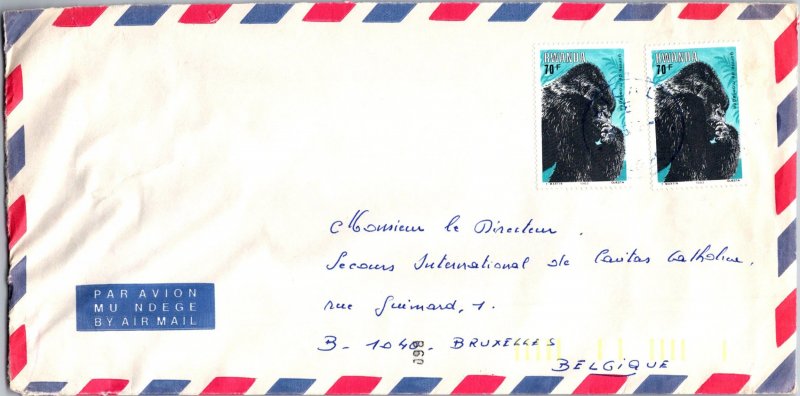 RWANDA RWANDA
70F 70F
Monsieur le Directeur
Secours International de Caritas Catholica,
rue Guimard, 1.
B - 1040 - BRUXELLES
BELGIQUE
PAR AVION
MU NDEGE
BY AIR MAIL
098